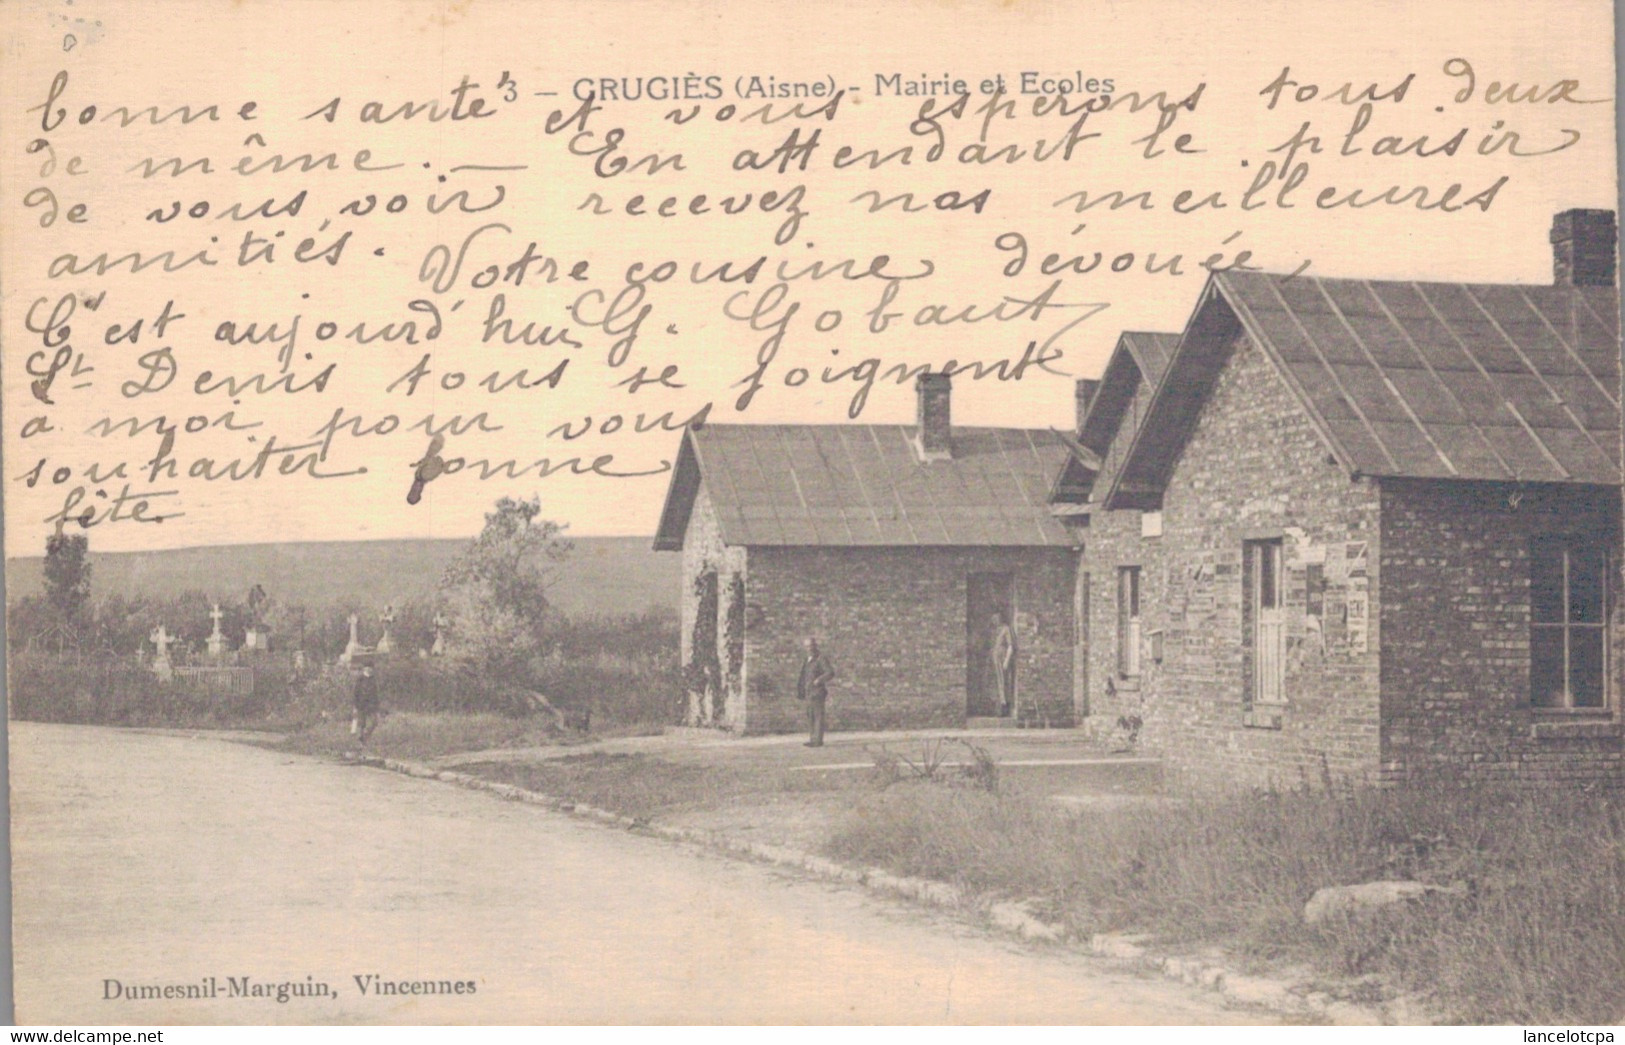 3 — GRUGIÈS (Aisne) - Mairie et Ecoles
bonne santé et vous espérons tous deux
de même. — En attendant le plaisir
de vous voir recevez nos meilleures
amitiés. Votre cousine dévouée,
G. Gobaut
C'est aujourd'hui
St Denis tous se joignent
à moi pour vous
souhaiter bonne
fête.
Dumesnil-Marguin, Vincennes
website : lancelot.eklablog.com
lancelotcpa